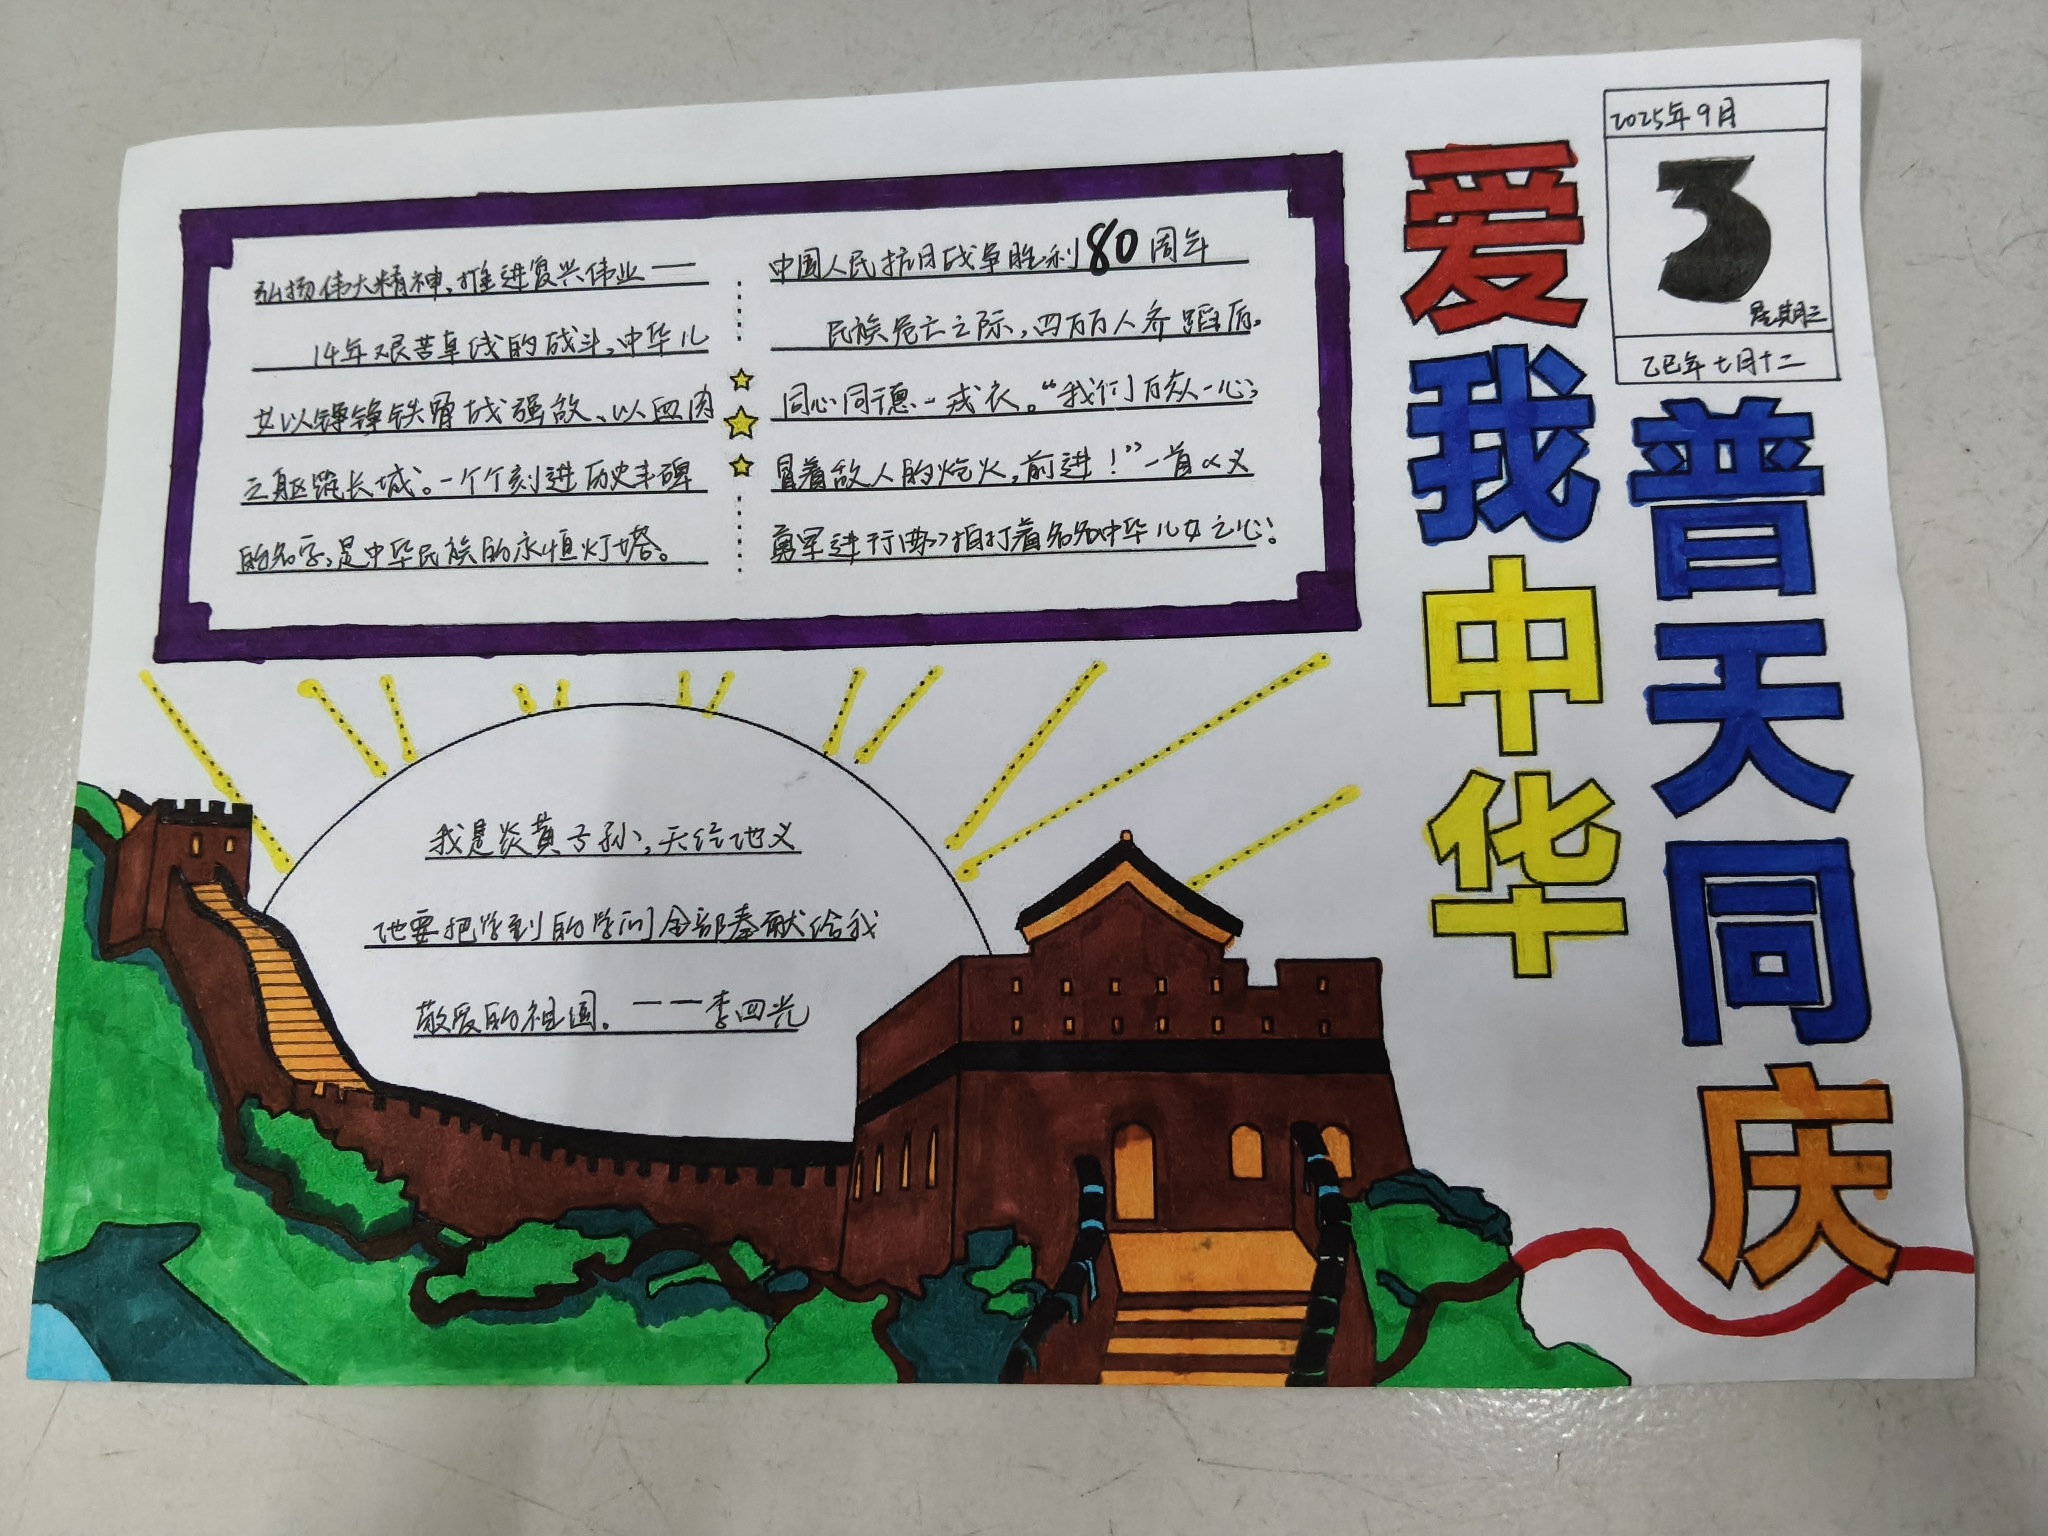 弘扬伟大精神,推进复兴伟业——
14年艰苦卓绝的战斗,中华儿
女以铮铮铁骨战强敌、以血肉
之躯筑长城。一个个刻进历史丰碑
的名字,是中华民族的永恒灯塔。
中国人民抗日战争胜利80周年
民族危亡之际,四万万人齐蹈厉,
同心同德一戎衣。“我们万众一心,
冒着敌人的炮火,前进！”一首《义
勇军进行曲》拍打着名名中华儿女之心！
我是炎黄子孙,天经地义
地要把学到的学问全部奉献给我
敬爱的祖国。——李四光
爱我中华
2025年9月
3
星期三
乙巳年七月十二
普天同庆